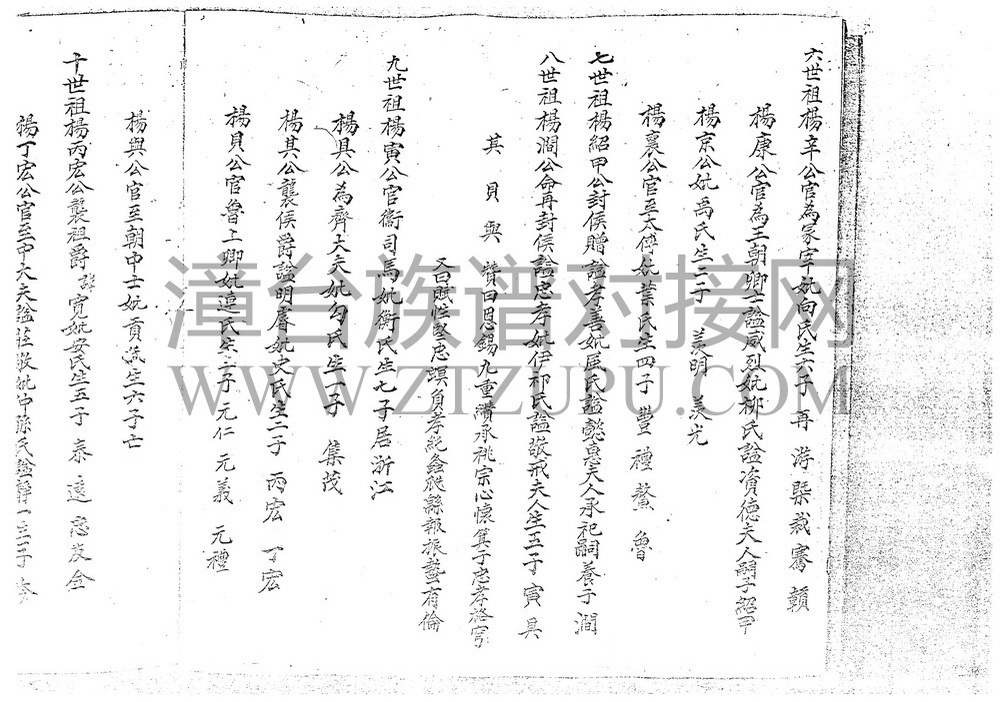 六世祖楊辛公官為冡宰妣向氏生六子 再 游 琹 裁 騫 頼
楊康公官為王朝卿士諡威烈妣柳氏諡資德夫人嗣子紹甲
楊京公妣禹氏生二子 羙明 羙光
楊襄公官至太倅妣葉氏生四子 豐 禮 鰲 魯
七世祖楊紹甲公封侯贈諡孝善妣屈氏諡懿惠夫人承祀嗣養子澗
八世祖楊澗公命再封侯諡忠孝妣伊祁氏諡敬戒夫人生五子 寅 具
其 貝 與 贊曰恩錫九重讚承祧宗心懷箕子忠孝格穹
又曰賦性堅忠頌負孝純 縣報振藝有倫
九世祖楊寅公官衞司馬妣衡氏生七子居浙江
楊具公為齊大夫妣勾氏生一子 集茂
楊其公襲侯爵諡明睿妣史氏生二子 丙宏 丁宏
楊貝公官魯上卿妣逗氏生三子 元仁 元義 元禮
楊與公官至朝中士妣貢氏生六子亡
十世祖楊丙宏公襲祖爵 寛妣安氏生五子 泰 遠 忠 友 金
楊丁宏公官至中大夫諡莊敬妣仲孫氏諡 一生一子
漳台族谱对接网
WWW.ZTZUPU.COM